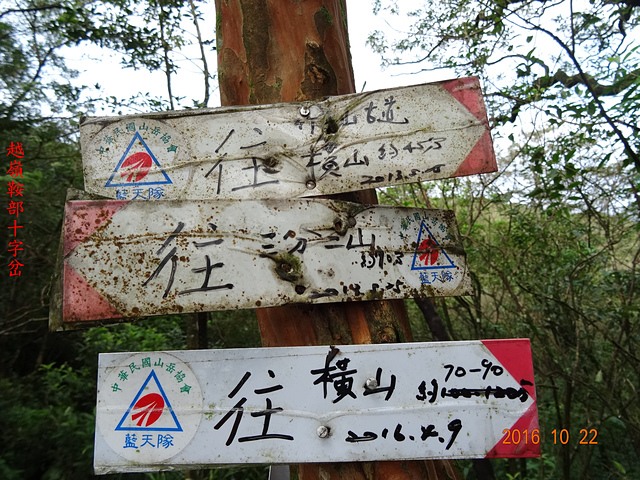 越橫鞍部十字岔
中華民國山岳協會
藍天隊
往
山古道
橫山 約45分
2013.5.5
往
三分二山
約90分
藍天隊
中華民國山岳協會
藍天隊
往
橫山
70-90
約
2016.4.9
2016 10 22